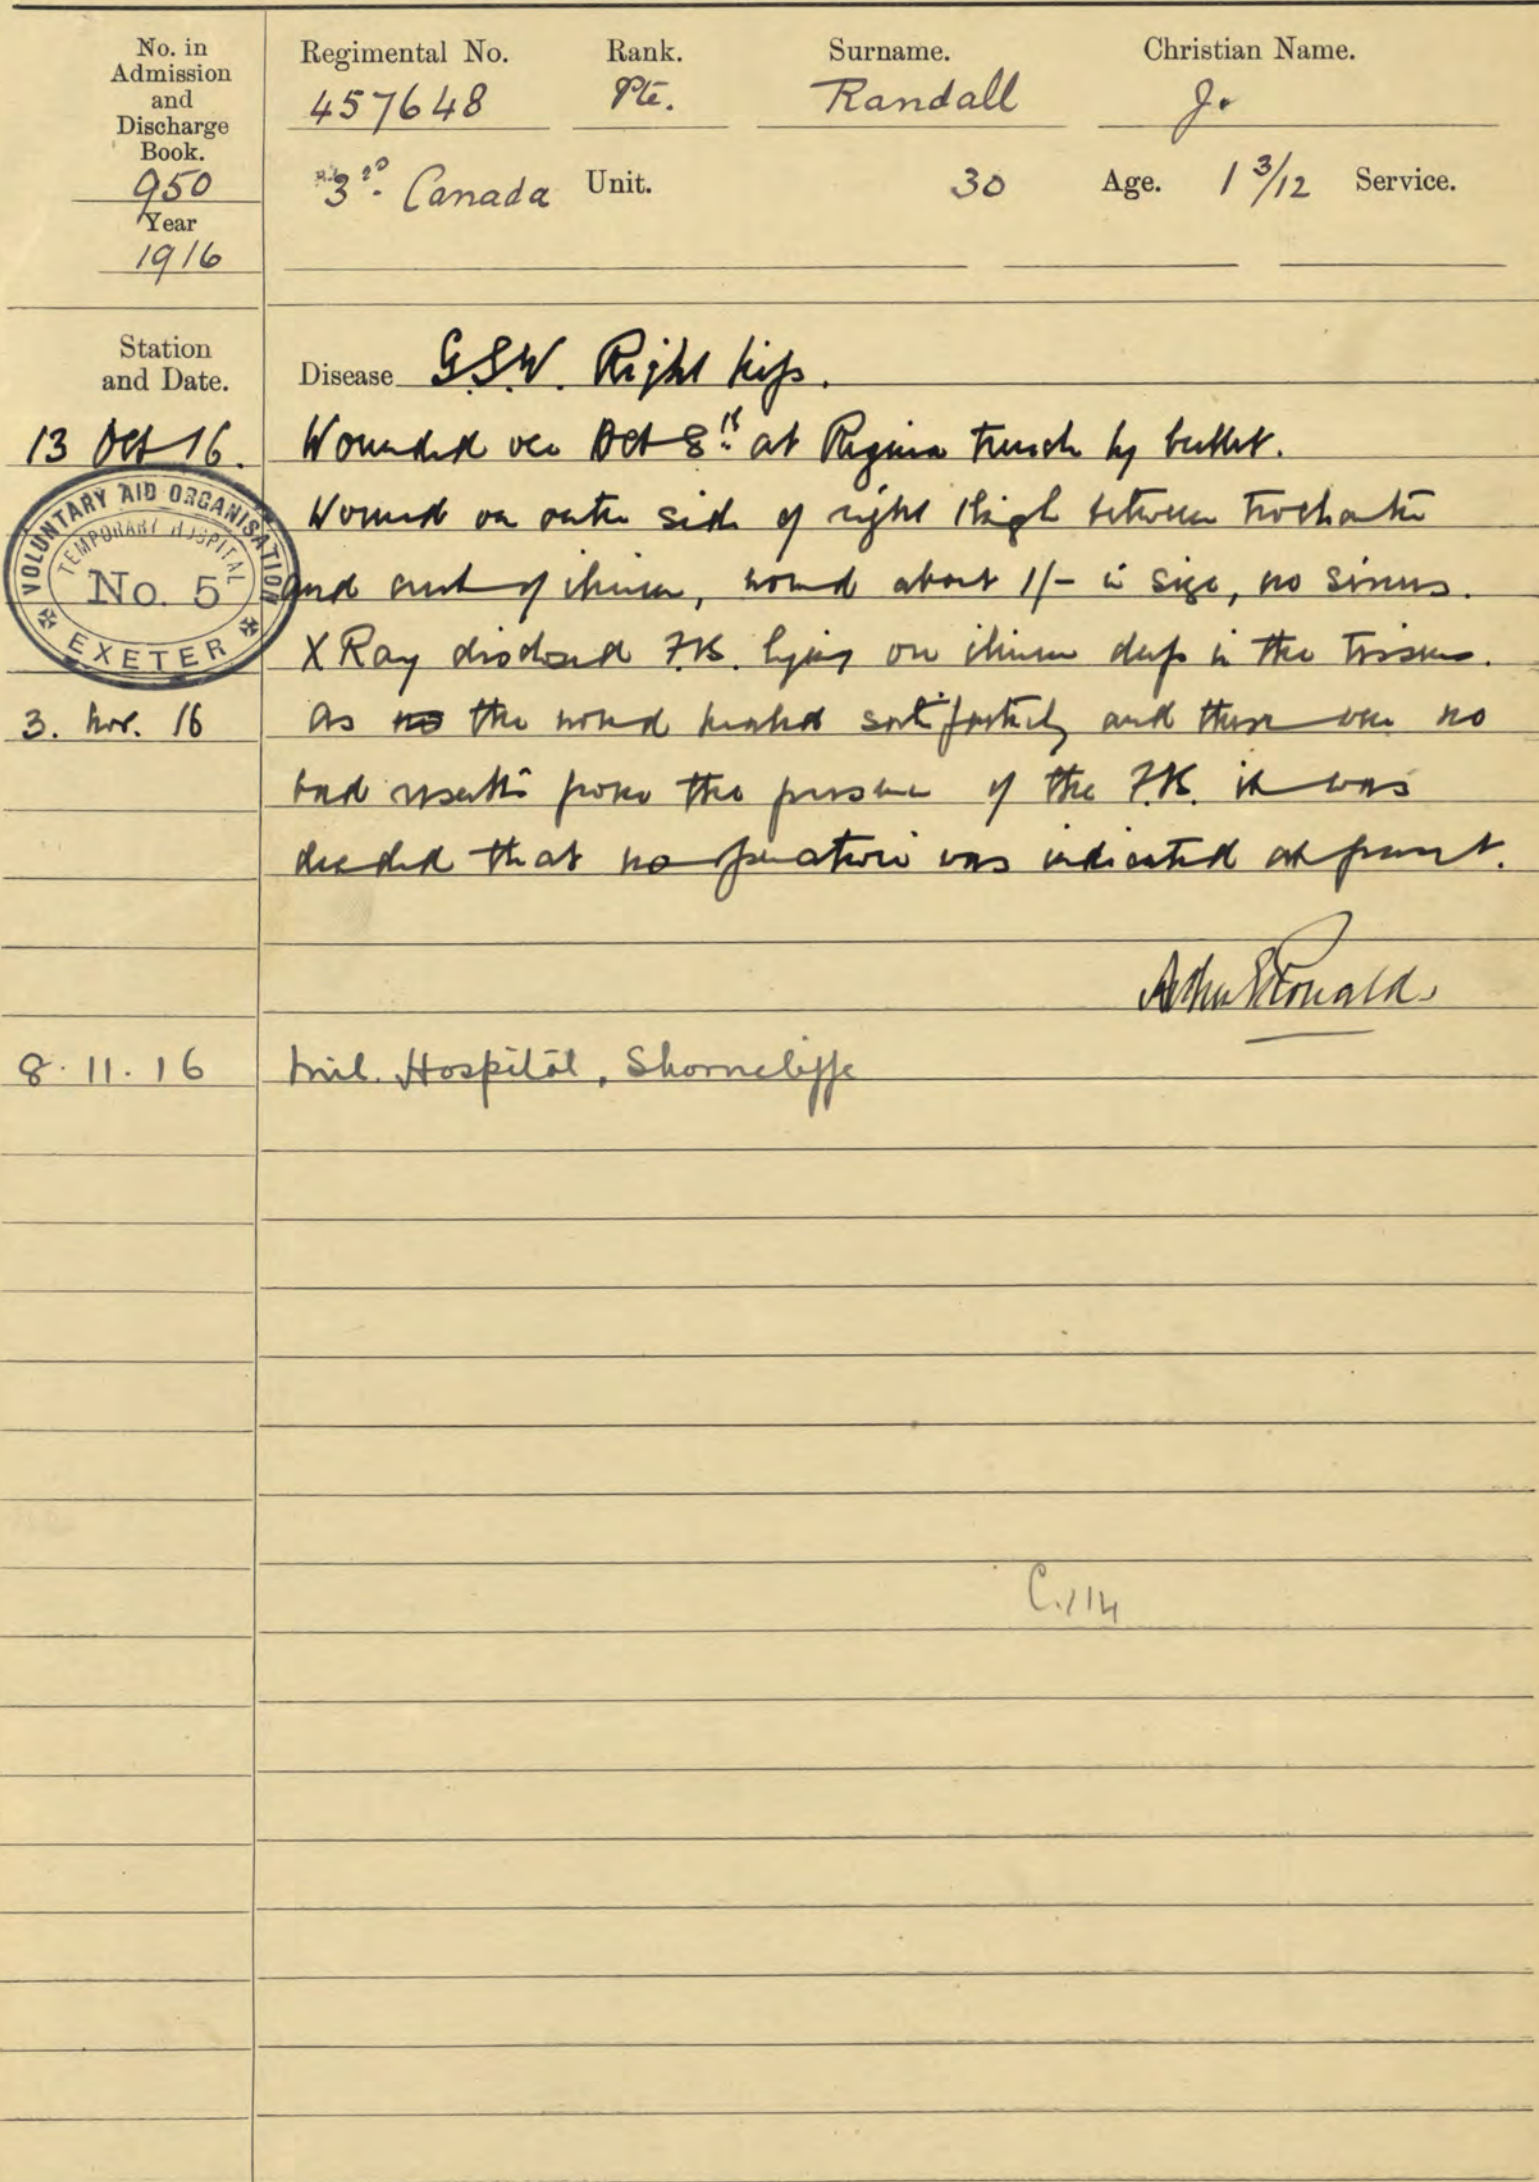 No. in
Admission
and
Discharge
Book.
950
Year
1916
Regimental No. Rank. Surname. Christian Name.
457648 Pte. Randall J.
3rd Canada Unit. 30 Age. 1 3/12 Service.
Station
and Date.
Disease G.S.W. Right hip.
13 Oct 16. Wounded on Oct 8th at Regina Trench by bullet.
VOLUNTARY AID ORGANISATION
TEMPORARY HOSPITAL
No. 5
EXETER
Wound on outer side of right thigh between trochanter
and crest of ilium, wound about 1/- in size, no sinus.
X Ray disclosed F.B. lying on ilium deep in the tissues.
3. Nov. 16 As the wound healed satisfactorily and there were no
bad results from the presence of the F.B. it was
decided that no operation was indicated at present.
8.11.16 Mil. Hospital, Shorncliffe
C.114